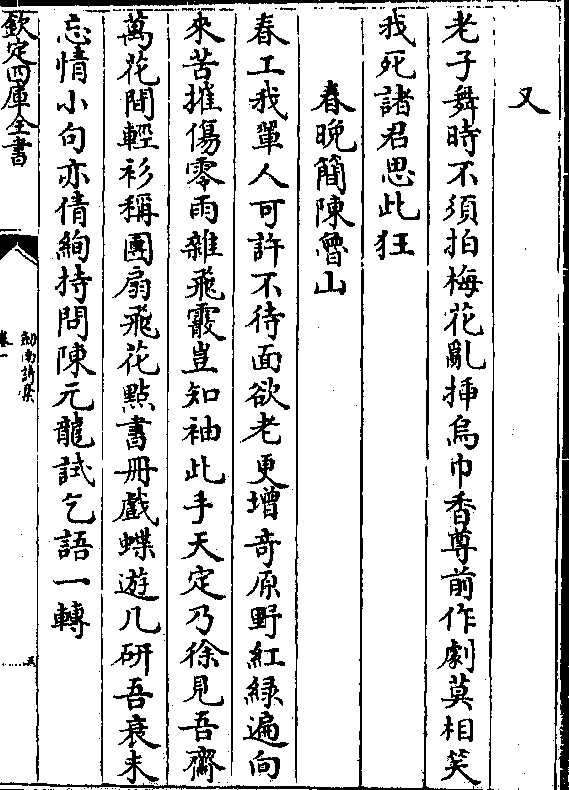 又
老子舞時不須拍梅花亂揷烏巾香尊前作劇莫相笑
我死諸君思此狂
春晚簡陳魯山
春工我輩人可許不待面欲老更增竒原野紅緑遍向
來苦摧傷零雨雜飛霰豈知袖此手天定乃徐見吾齋
萬花間輕衫稱團扇飛花㸃書冊戲蝶遊几研吾衰未
忘情小句亦倩絢持問陳元龍試乞語一轉
欽定四庫全書
劍南詩藁
卷一
五